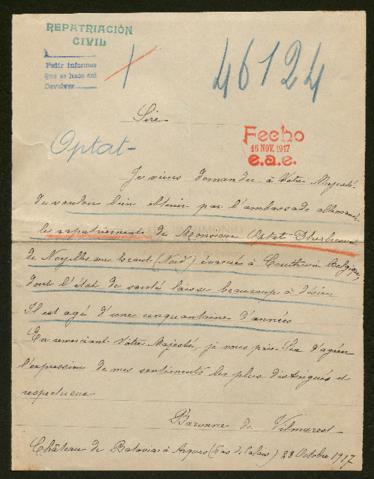 REPATRIACIÓN
CIVIL
Pedir informes
Que se haga así
Devolver
46124
Sire
Fecho
15 NOV. 1917
e.a.e.
Optat-
Je viens demander à Votre Majesté
de vouloir bien obtenir par l'ambassade allemande
le rapatriement de Monsieur Optat
de Noyelles au (Nord) évacué à
dont l'état de santé laisse beaucoup à désirer
Il est agé d'une cinquantaine d'années
En remerciant Votre Majesté, je vous prie Sire d'agréer
l'expression de mes sentiments les plus distingués et
respectueux
Baronne de
Château de Batavia à Arques (Pas de Calais) 28 Octobre 1917